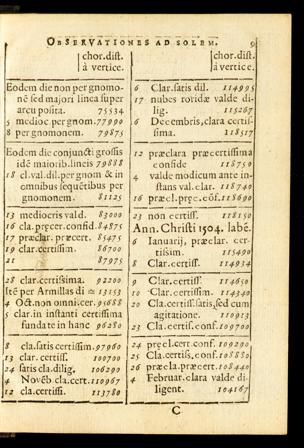 OBSERVATIONES AD SOLEM. 9
chor.dist.
à vertice.
Eodem die non per gnomo-
nē sed majori linea super
arcu posita. 75534
5 medioc per gnom. 77990
8 per gnomonem. 79875
Eodem die conjuncti grossis
idē maiorib. lineis 79888
18 cl.val.dil.per gnom & in
omnibus sequētibus per
gnomonem. 81125
13 mediocris vald. 83000
16 cla. præcer. confid. 84875
17 præclar. præcert. 85475
19 clar. certissim. 86700
21 87975
28 clar. certissima. 92200
Itē per Armillas di 13153
4 Oct. non omni. cer. 95688
5 clar. in instanti certissima
fundate in hanc 96280
8 cla. satis certissim. 97960
13 clar. certiss. 100700
24 satis cla. dilig. 106290
4 Novēb. cla. cert. 110967
12 cla. certiss. 113780
chor. dist.
à vertice.
6 Clar. satis dil. 114995
17 nubes roridæ valde di-
lig. 115267
6 Decembris, clara certis-
sima. 118517
12 præclara præcertissima
confide 118750
4 valde modicum ante in-
stans val. clar. 118740
16 præcl. præc. cōf. 118690
23 non certiss. 118150
Ann. Christi 1504. labē.
6 Ianuarij, præclar. cer-
tissim. 115490
8 Clar. certiss. 114934
9 Clar. certiss. 114650
10 Clar. certissim. 114340
20 Cla. certiss. satis, sed cum
agitatione. 110913
23 Cla. certis. conf. 109700
24 præcl. cert. conf. 109290
25 Cla. certis. conf. 108880
26 præcla. præcert. 108440
4 Februar. clara valde di-
ligent. 104167
C